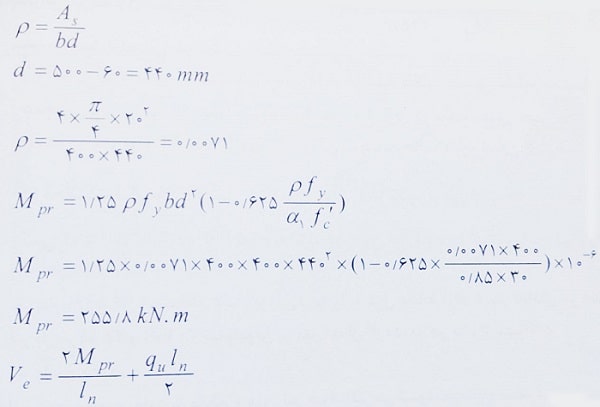 ρ = A_s / bd
d = ۵۰۰ − ۶۰ = ۴۴۰ mm
ρ = (۴ × π/۴ × ۲۰^۲) / (۴۰۰ × ۴۴۰) = ۰/۰۰۷۱
M_pr = ۱/۲۵ ρ f_y b d^۲ (۱ − ۰/۶۲۵ ρ f_y / α_۱ f'_c)
M_pr = ۱/۲۵ × ۰/۰۰۷۱ × ۴۰۰ × ۴۰۰ × ۴۴۰^۲ × (۱ − ۰/۶۲۵ × (۰/۰۰۷۱ × ۴۰۰) / (۰/۸۵ × ۳۰)) × ۱۰^−۶
M_pr = ۲۵۵/۸ kN.m
V_e = ۲M_pr / l_n + q_u l_n / ۲